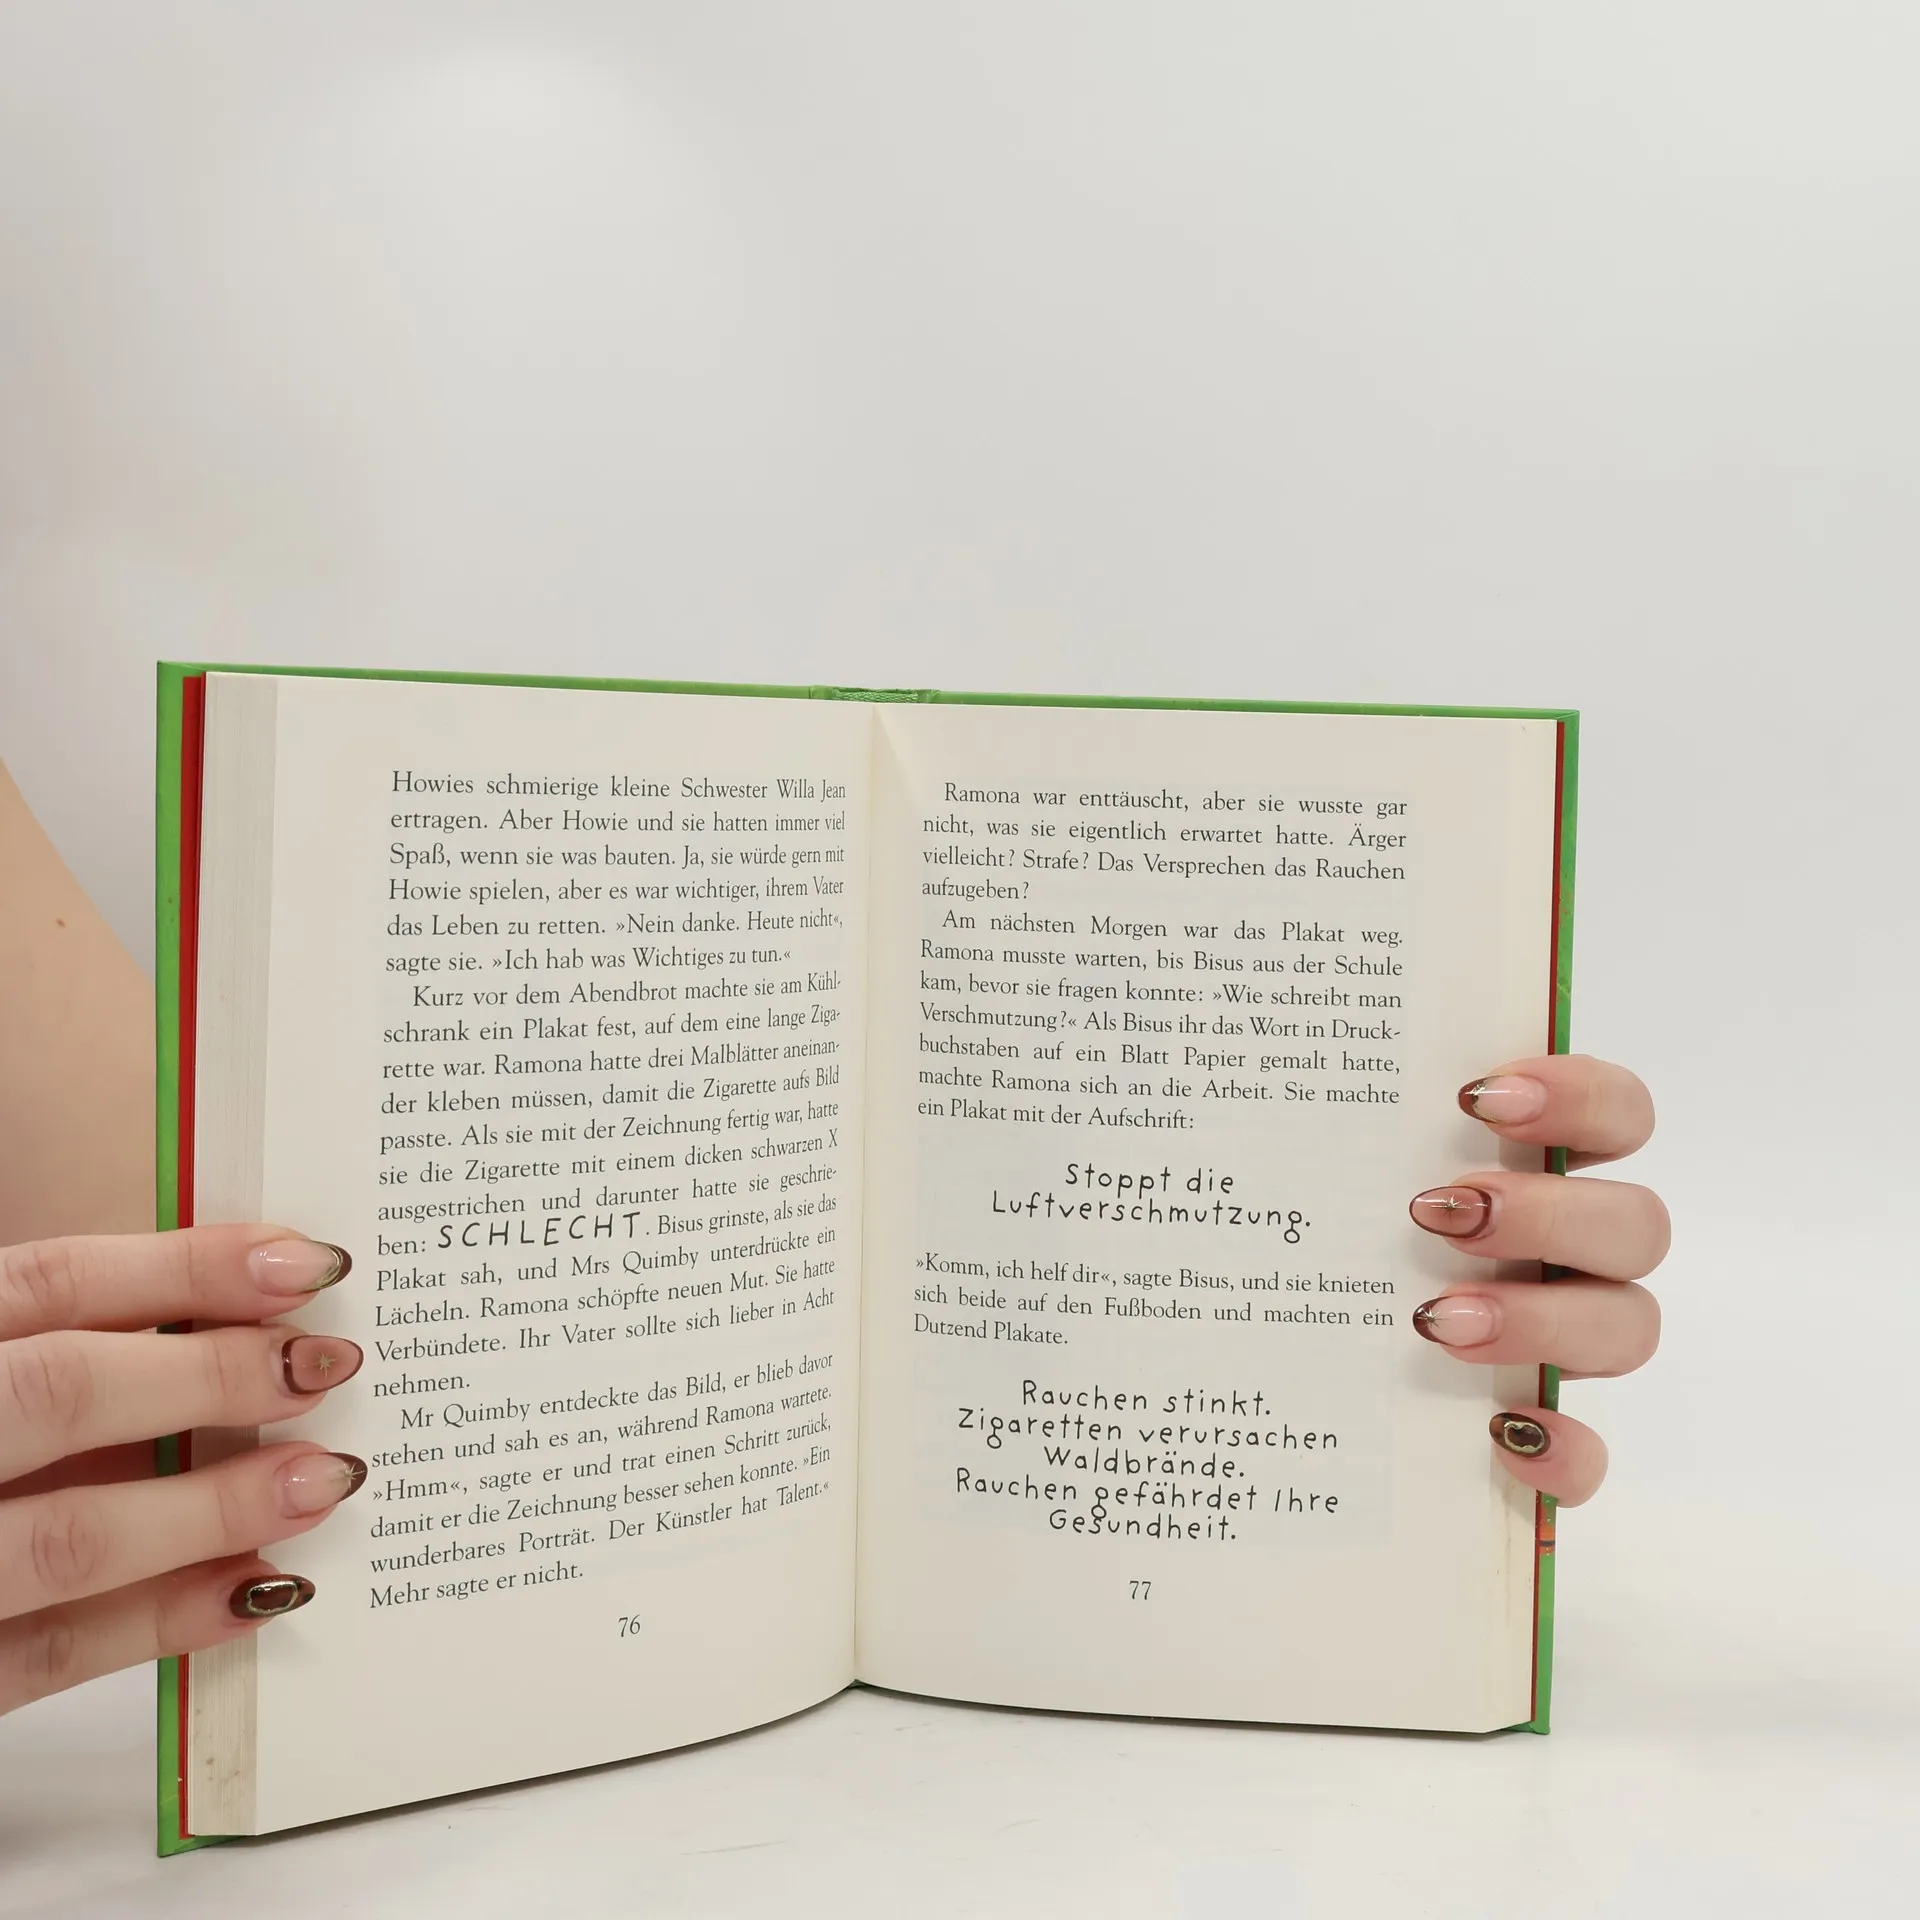 Howies schmierige kleine Schwester Willa Jean
ertragen. Aber Howie und sie hatten immer viel
Spaß, wenn sie was bauten. Ja, sie würde gern mit
Howie spielen, aber es war wichtiger, ihrem Vater
das Leben zu retten. »Nein danke. Heute nicht«,
sagte sie. »Ich hab was Wichtiges zu tun.«
Kurz vor dem Abendbrot machte sie am Kühl-
schrank ein Plakat fest, auf dem eine lange Ziga-
rette war. Ramona hatte drei Malblätter aneinan-
der kleben müssen, damit die Zigarette aufs Bild
passte. Als sie mit der Zeichnung fertig war, hatte
sie die Zigarette mit einem dicken schwarzen X
ausgestrichen und darunter hatte sie geschrie-
ben: SCHLECHT. Bisus grinste, als sie das
Plakat sah, und Mrs Quimby unterdrückte ein
Lächeln. Ramona schöpfte neuen Mut. Sie hatte
Verbündete. Ihr Vater sollte sich lieber in Acht
nehmen.
Mr Quimby entdeckte das Bild, er blieb davor
stehen und sah es an, während Ramona wartete.
»Hmm«, sagte er und trat einen Schritt zurück,
damit er die Zeichnung besser sehen konnte. »Ein
wunderbares Porträt. Der Künstler hat Talent.«
Mehr sagte er nicht.
76
Ramona war enttäuscht, aber sie wusste gar
nicht, was sie eigentlich erwartet hatte. Ärger
vielleicht? Strafe? Das Versprechen das Rauchen
aufzugeben?
Am nächsten Morgen war das Plakat weg.
Ramona musste warten, bis Bisus aus der Schule
kam, bevor sie fragen konnte: »Wie schreibt man
Verschmutzung?« Als Bisus ihr das Wort in Druck-
buchstaben auf ein Blatt Papier gemalt hatte,
machte Ramona sich an die Arbeit. Sie machte
ein Plakat mit der Aufschrift:
Stoppt die
Luftverschmutzung.
»Komm, ich helf dir«, sagte Bisus, und sie knieten
sich beide auf den Fußboden und machten ein
Dutzend Plakate.
Rauchen stinkt.
Zigaretten verursachen
Waldbrände.
Rauchen gefährdet Ihre
Gesundheit.
77